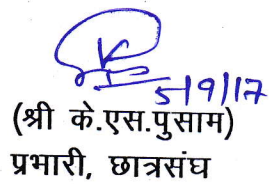 5/9/17
(श्री के.एस.पुसाम)
प्रभारी, छात्रसंघ